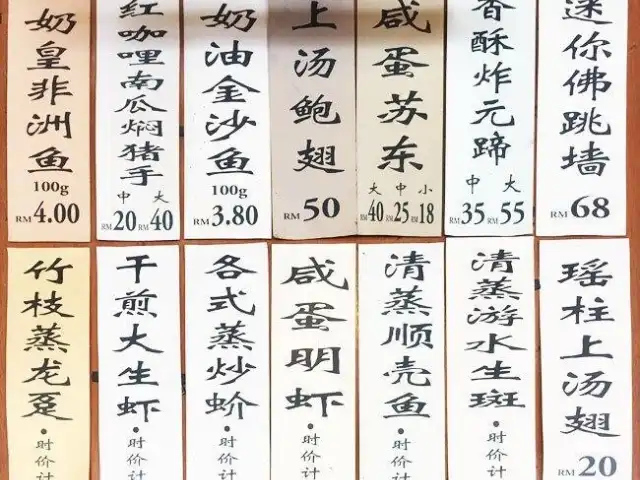 奶皇非洲鱼
100g
RM 4.00
红咖哩南瓜焖猪手
中 大
RM 20 RM 40
奶油金沙鱼
100g
RM 3.80
上汤鲍翅
RM 50
咸蛋苏东
大 中 小
RM 40 RM 25 RM 18
香酥炸元蹄
中 大
RM 35 RM 55
迷你佛跳墙
RM 68
竹枝蒸龙趸•时价计
干煎大生虾•时价计
各式蒸炒蚧•时价计
咸蛋明虾•时价计
清蒸顺壳鱼•时价计
清蒸游水生斑•时价计
瑶柱上汤翅
RM 20